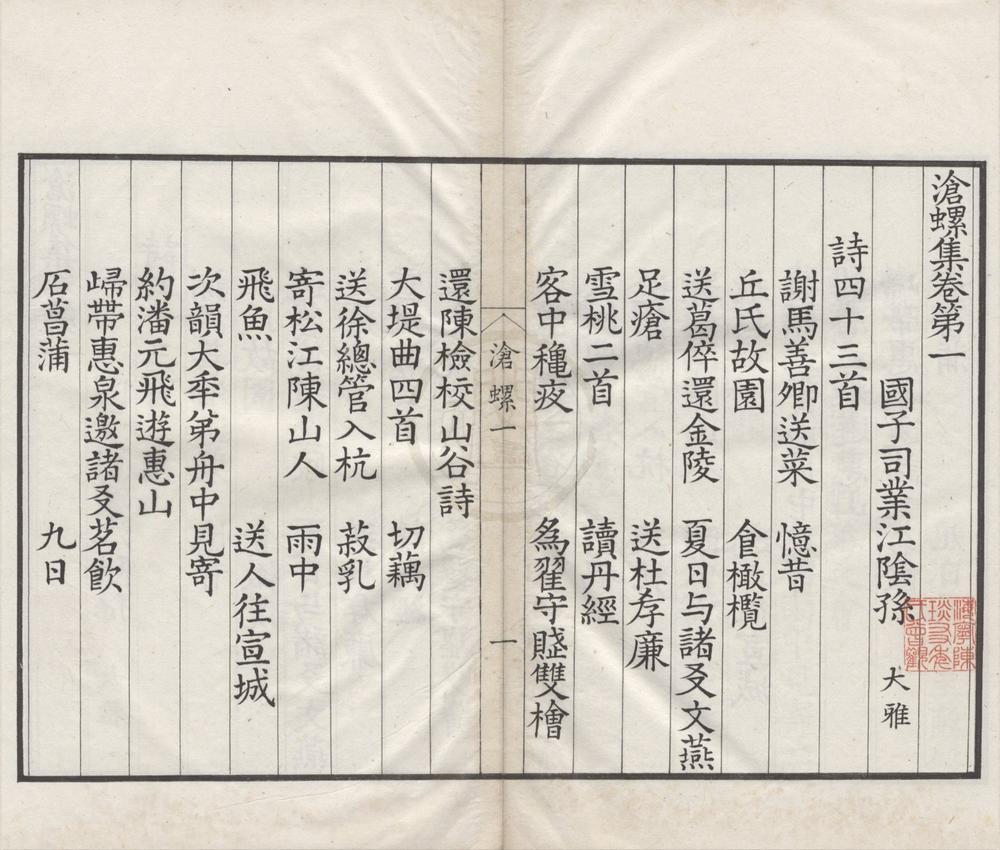 滄螺集卷第一
國子司業江陰孫 大雅
詩四十三首
謝馬善卿送菜 憶昔
丘氏故園 食橄欖
送葛倅還金陵 夏日与諸友文燕
足瘡 送杜孝廉
雪桃二首 讀丹經
客中穐夜 為翟守賦雙檜
滄螺一 一
還陳檢校山谷詩
大堤曲四首 切藕
送徐總管入杭 菽乳
寄松江陳山人 雨中
飛魚 送人往宣城
次韻大秊弟舟中見寄
約潘元飛遊惠山
歸帶惠泉邀諸友茗飲
石菖蒲 九日